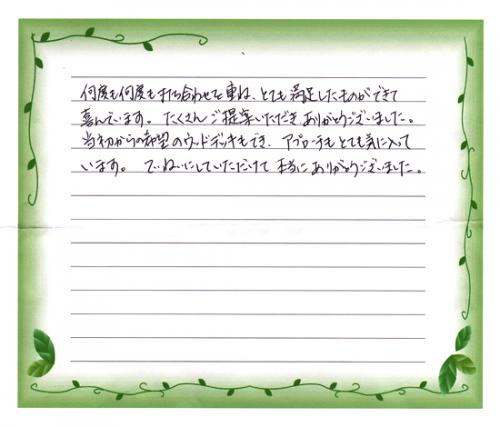 何度も何度も打ち合わせを重ね、とても満足したものができて
喜んでいます。たくさんご提案いただきありがとうございました。
当初からの希望のウッドデッキもでき、アプローチもとても気に入って
います。ていねいにしていただけて本当にありがとうございました。